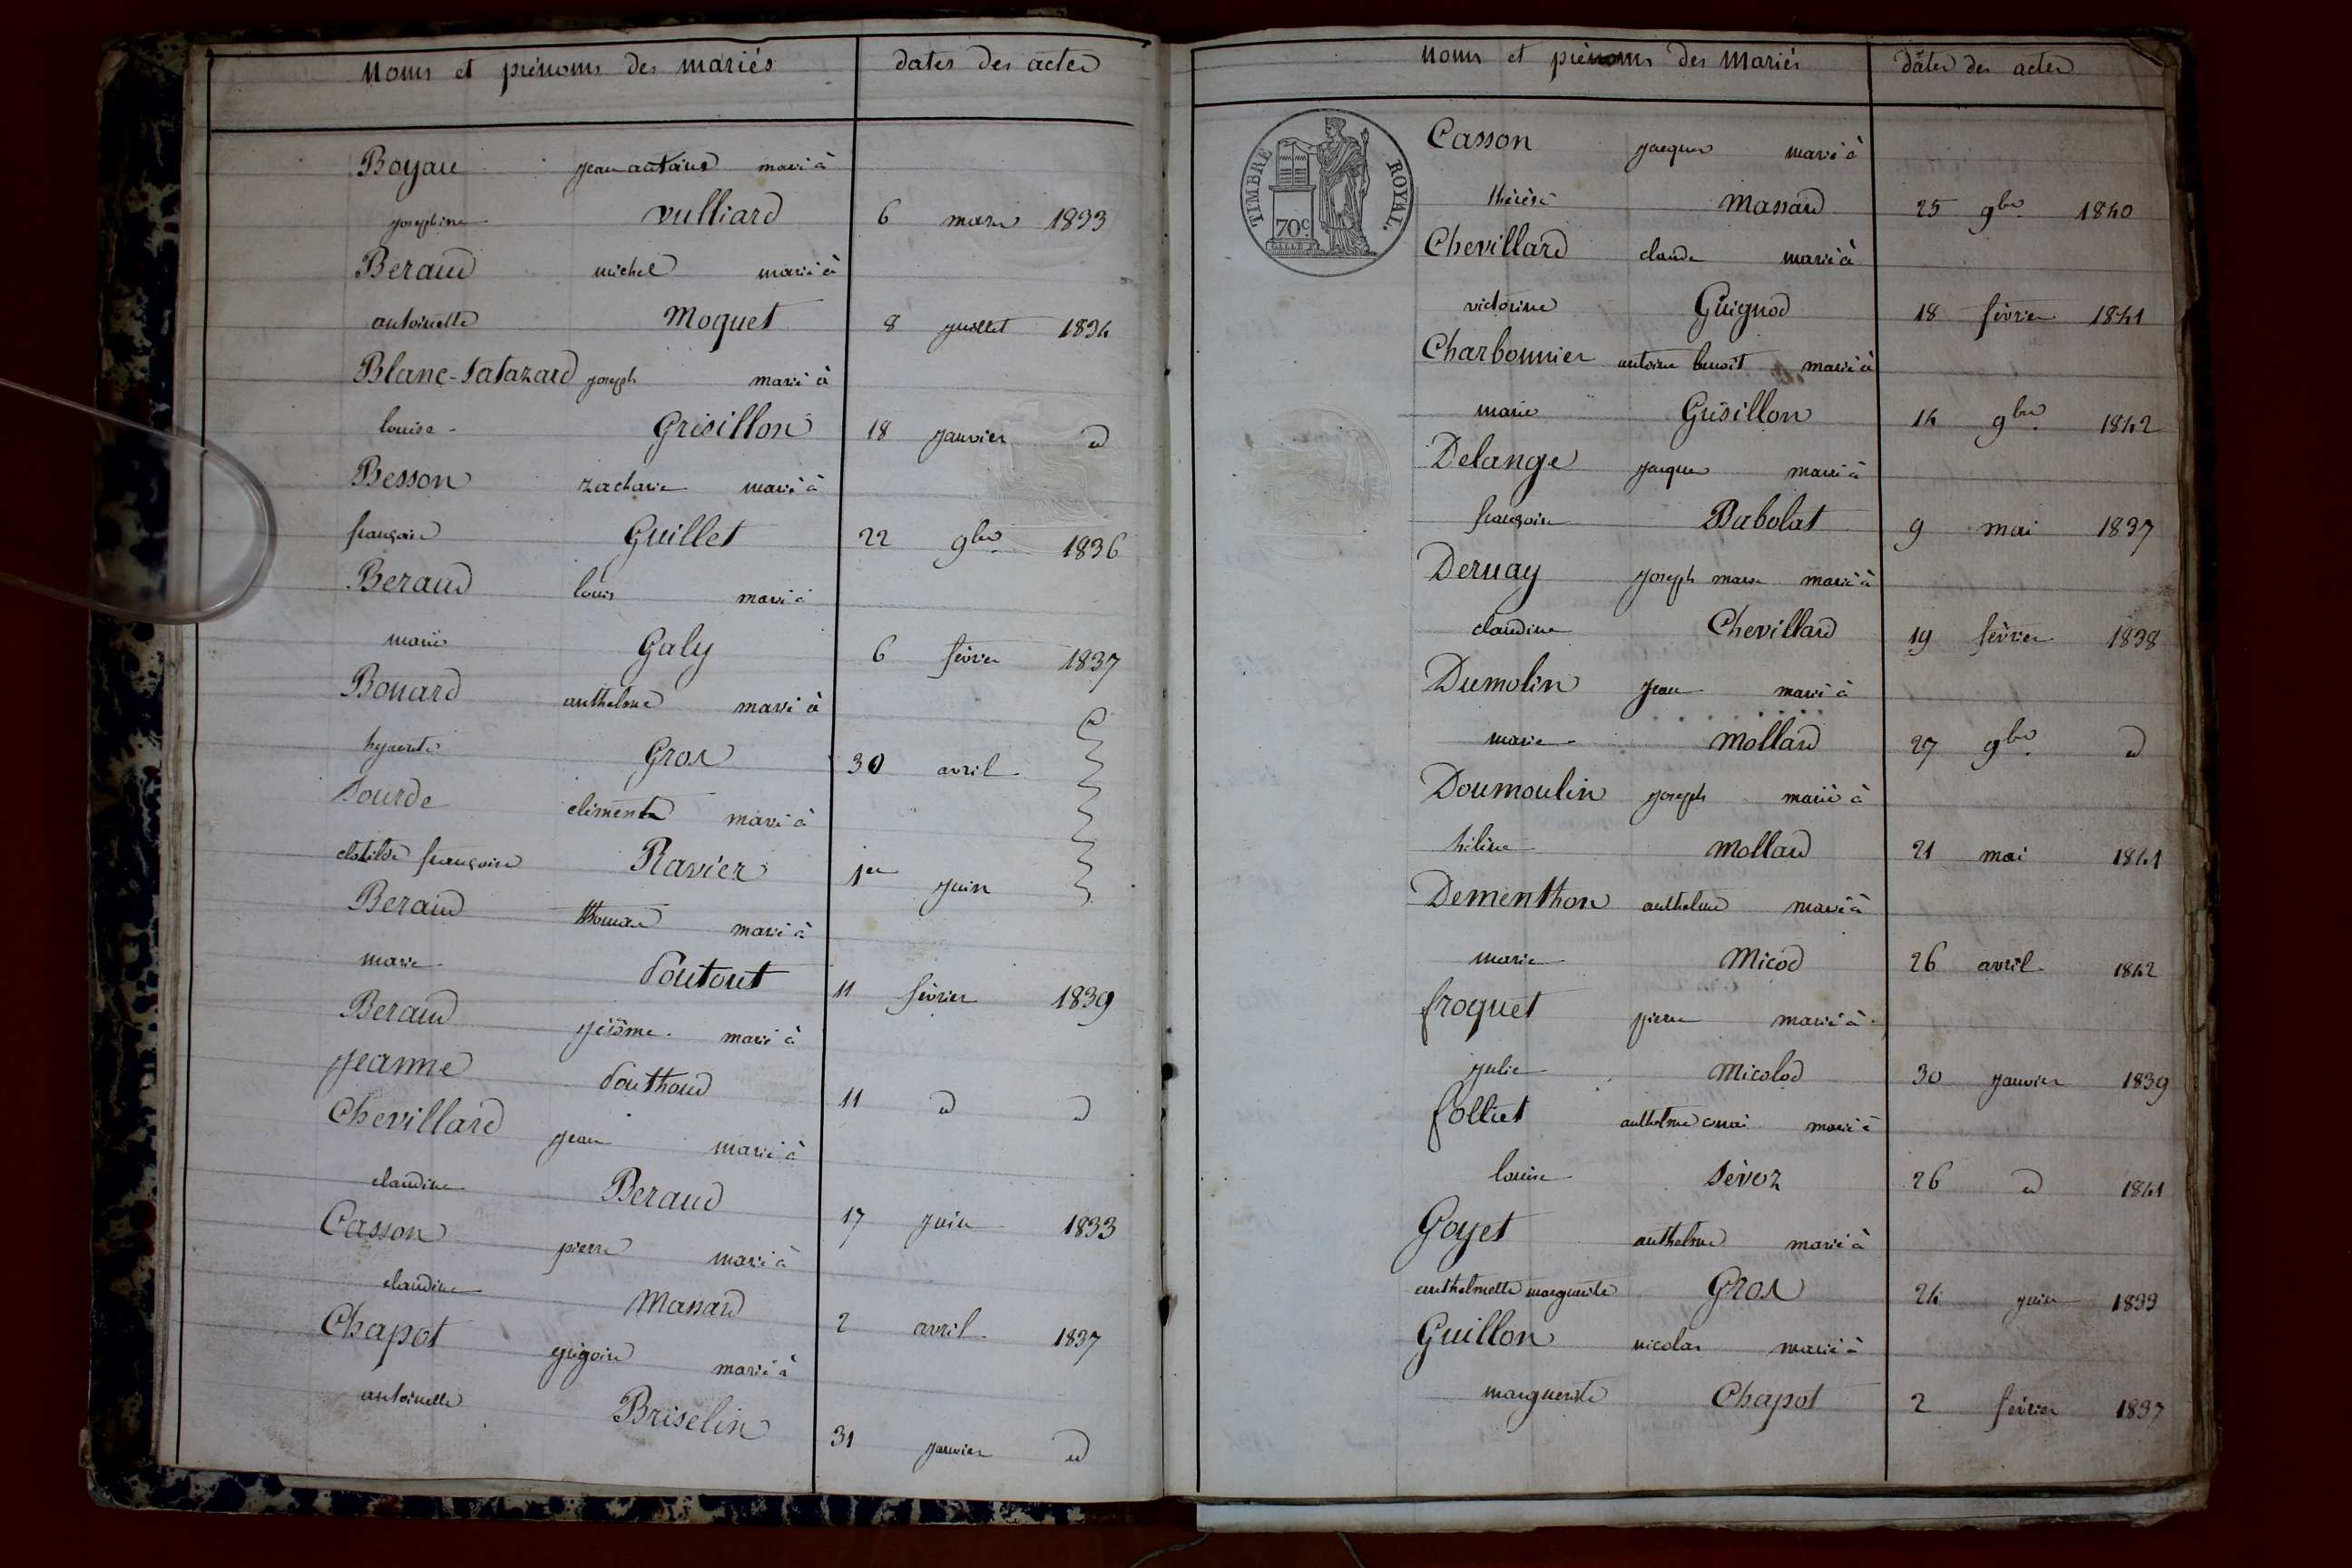 Noms et prénoms des mariés dates des actes
Boyau jean antoine marié à
josephine vulliard 6 mars 1833
Beraud michel marié à
antoinette Moquet 8 juillet 1834
Blanc-Tatazard joseph marié à
louise Grésillon 18 janvier d
Besson zacharie marié à
françoise Guillet 22 9bre 1836
Beraud louis marié à
marie Galy 6 févrer 1837
Bouard anthelme marié à
hyacinte Gros 30 avril
clémenta marié à
clotilde françoise Ravier 1er juin
Beraud thomas marié à
marie 11 février 1839
Beraud jérôme marié à
jeanne 11 d d
Chevillard jean marié à
claudine Beraud 17 juin 1833
Casson pierre marié à
claudine Massard 2 avril 1837
Chapot grégoire marié à
antoinette Briselin 31 janvier d
Noms et prénoms des Mariés dates des actes
TIMBRE ROYAL.
70c.
Casson jacques marié à
thérèse Massard 25 9bre 1840
Chevillard claude marié à
victorine Guignod 18 février 1841
Charbonnier antoine benoit marié à
marie Grésillon 14 9bre 1842
Delange jacques marié à
françoise Babolat 9 mai 1837
Dernay joseph marie marié à
claudine Chevillard 19 février 1838
Dumolin jean marié à
marie Mollard 27 9bre d
Doumoulin joseph marié à
hélène Mollard 21 mai 1841
Dementhon anthelme marié à
marie Micod 26 avril 1842
froquet pierre marié à
julie Micolod 30 janvier 1839
folliet anthelme marié à
louise Sèvoz 26 d 1841
Goyet anthelme marié à
anthelmette marguerite Gros 24 juin 1833
Guillon nicolas marié à
marguerite Chapot 2 février 1837